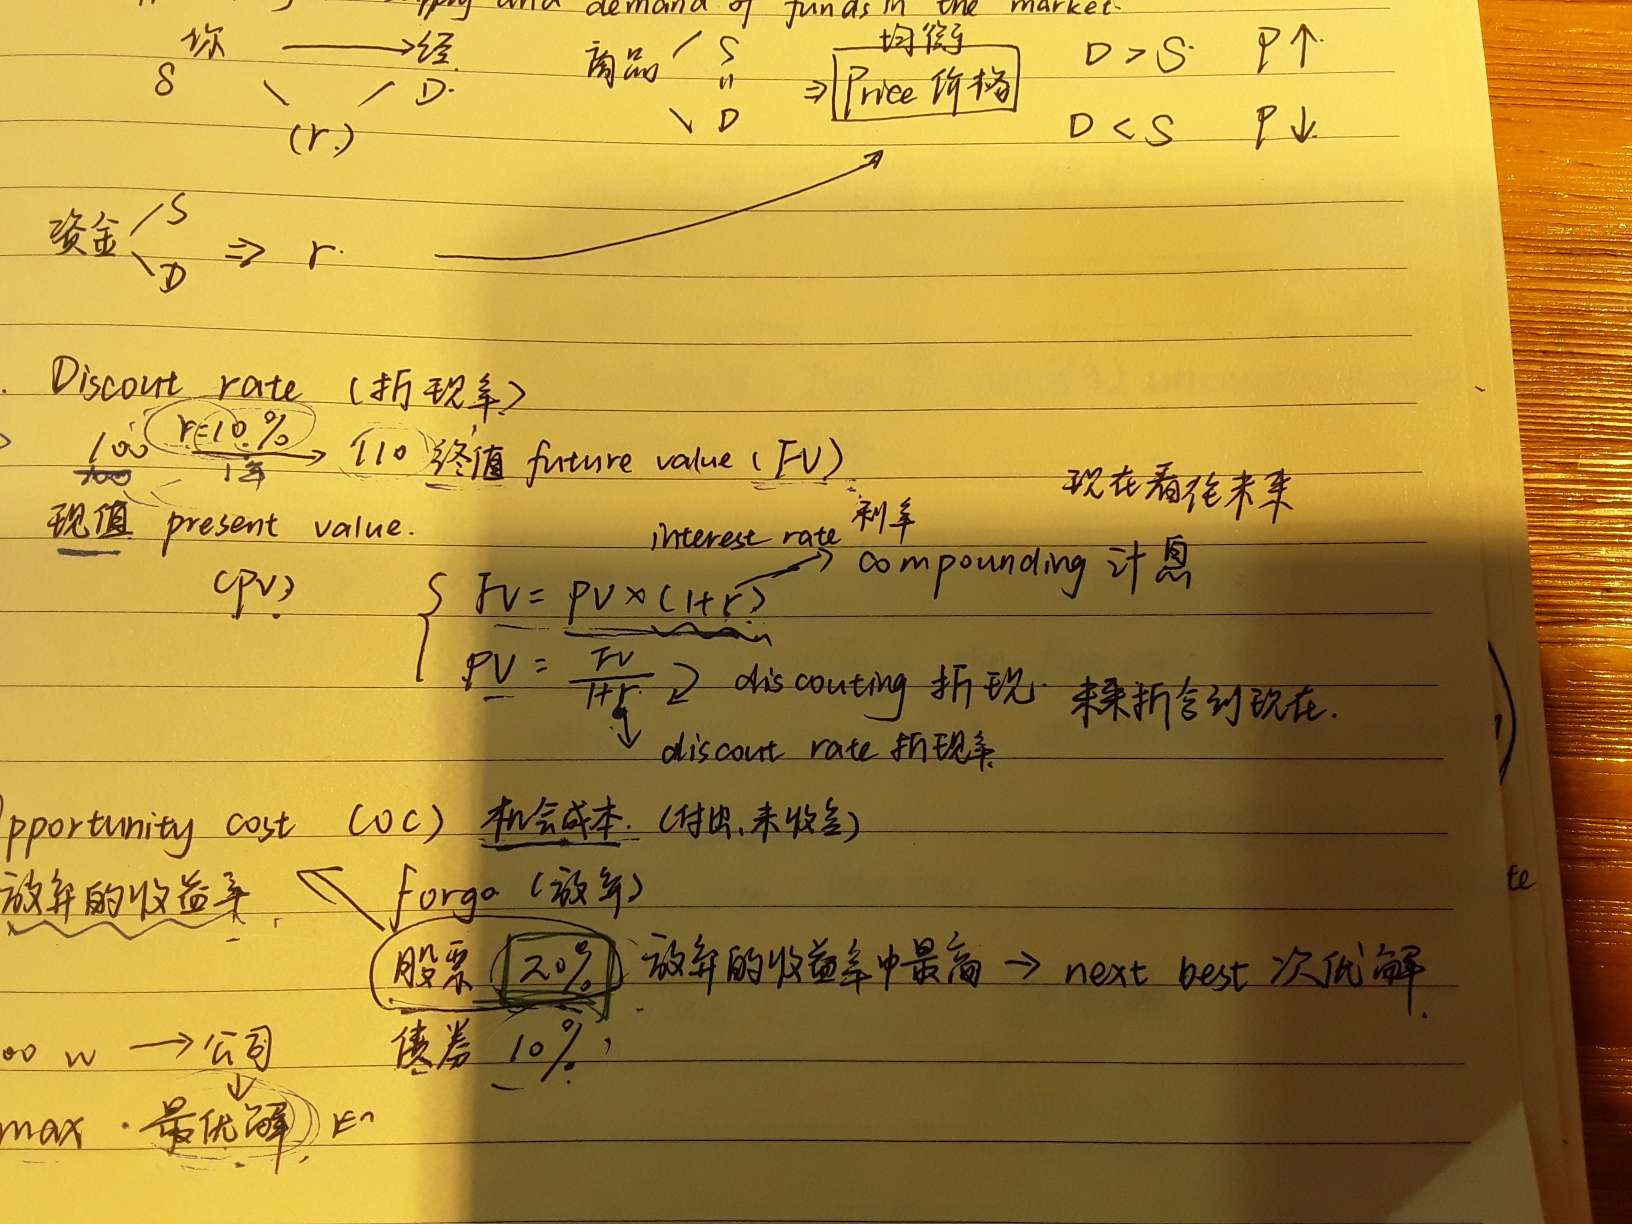 supply and demand of funds in the market.
你 → 经 商品 S 均衡 D > S P↑
S D. = ⇒ Price 价格
(r.) D D < S P↓
资金 S D ⇒ r.
Discout rate (折现率)
100 r=10% → 110 终值 future value (FV)
1年
现在看往未来
现值 present value.
(PV)
interest rate 利率
FV = PV × (1+r) → compounding 计息
PV = FV/1+r. discouting 折现. 未来折合到现在.
discout rate 折现率
pportunity cost (OC) 机会成本. (付出、未收益)
放弃的收益率 forgo (放弃)
股票 20% 放弃的收益率中最高 → next best 次优解.
00 w → 公司 债券 10%,
max · 最优解